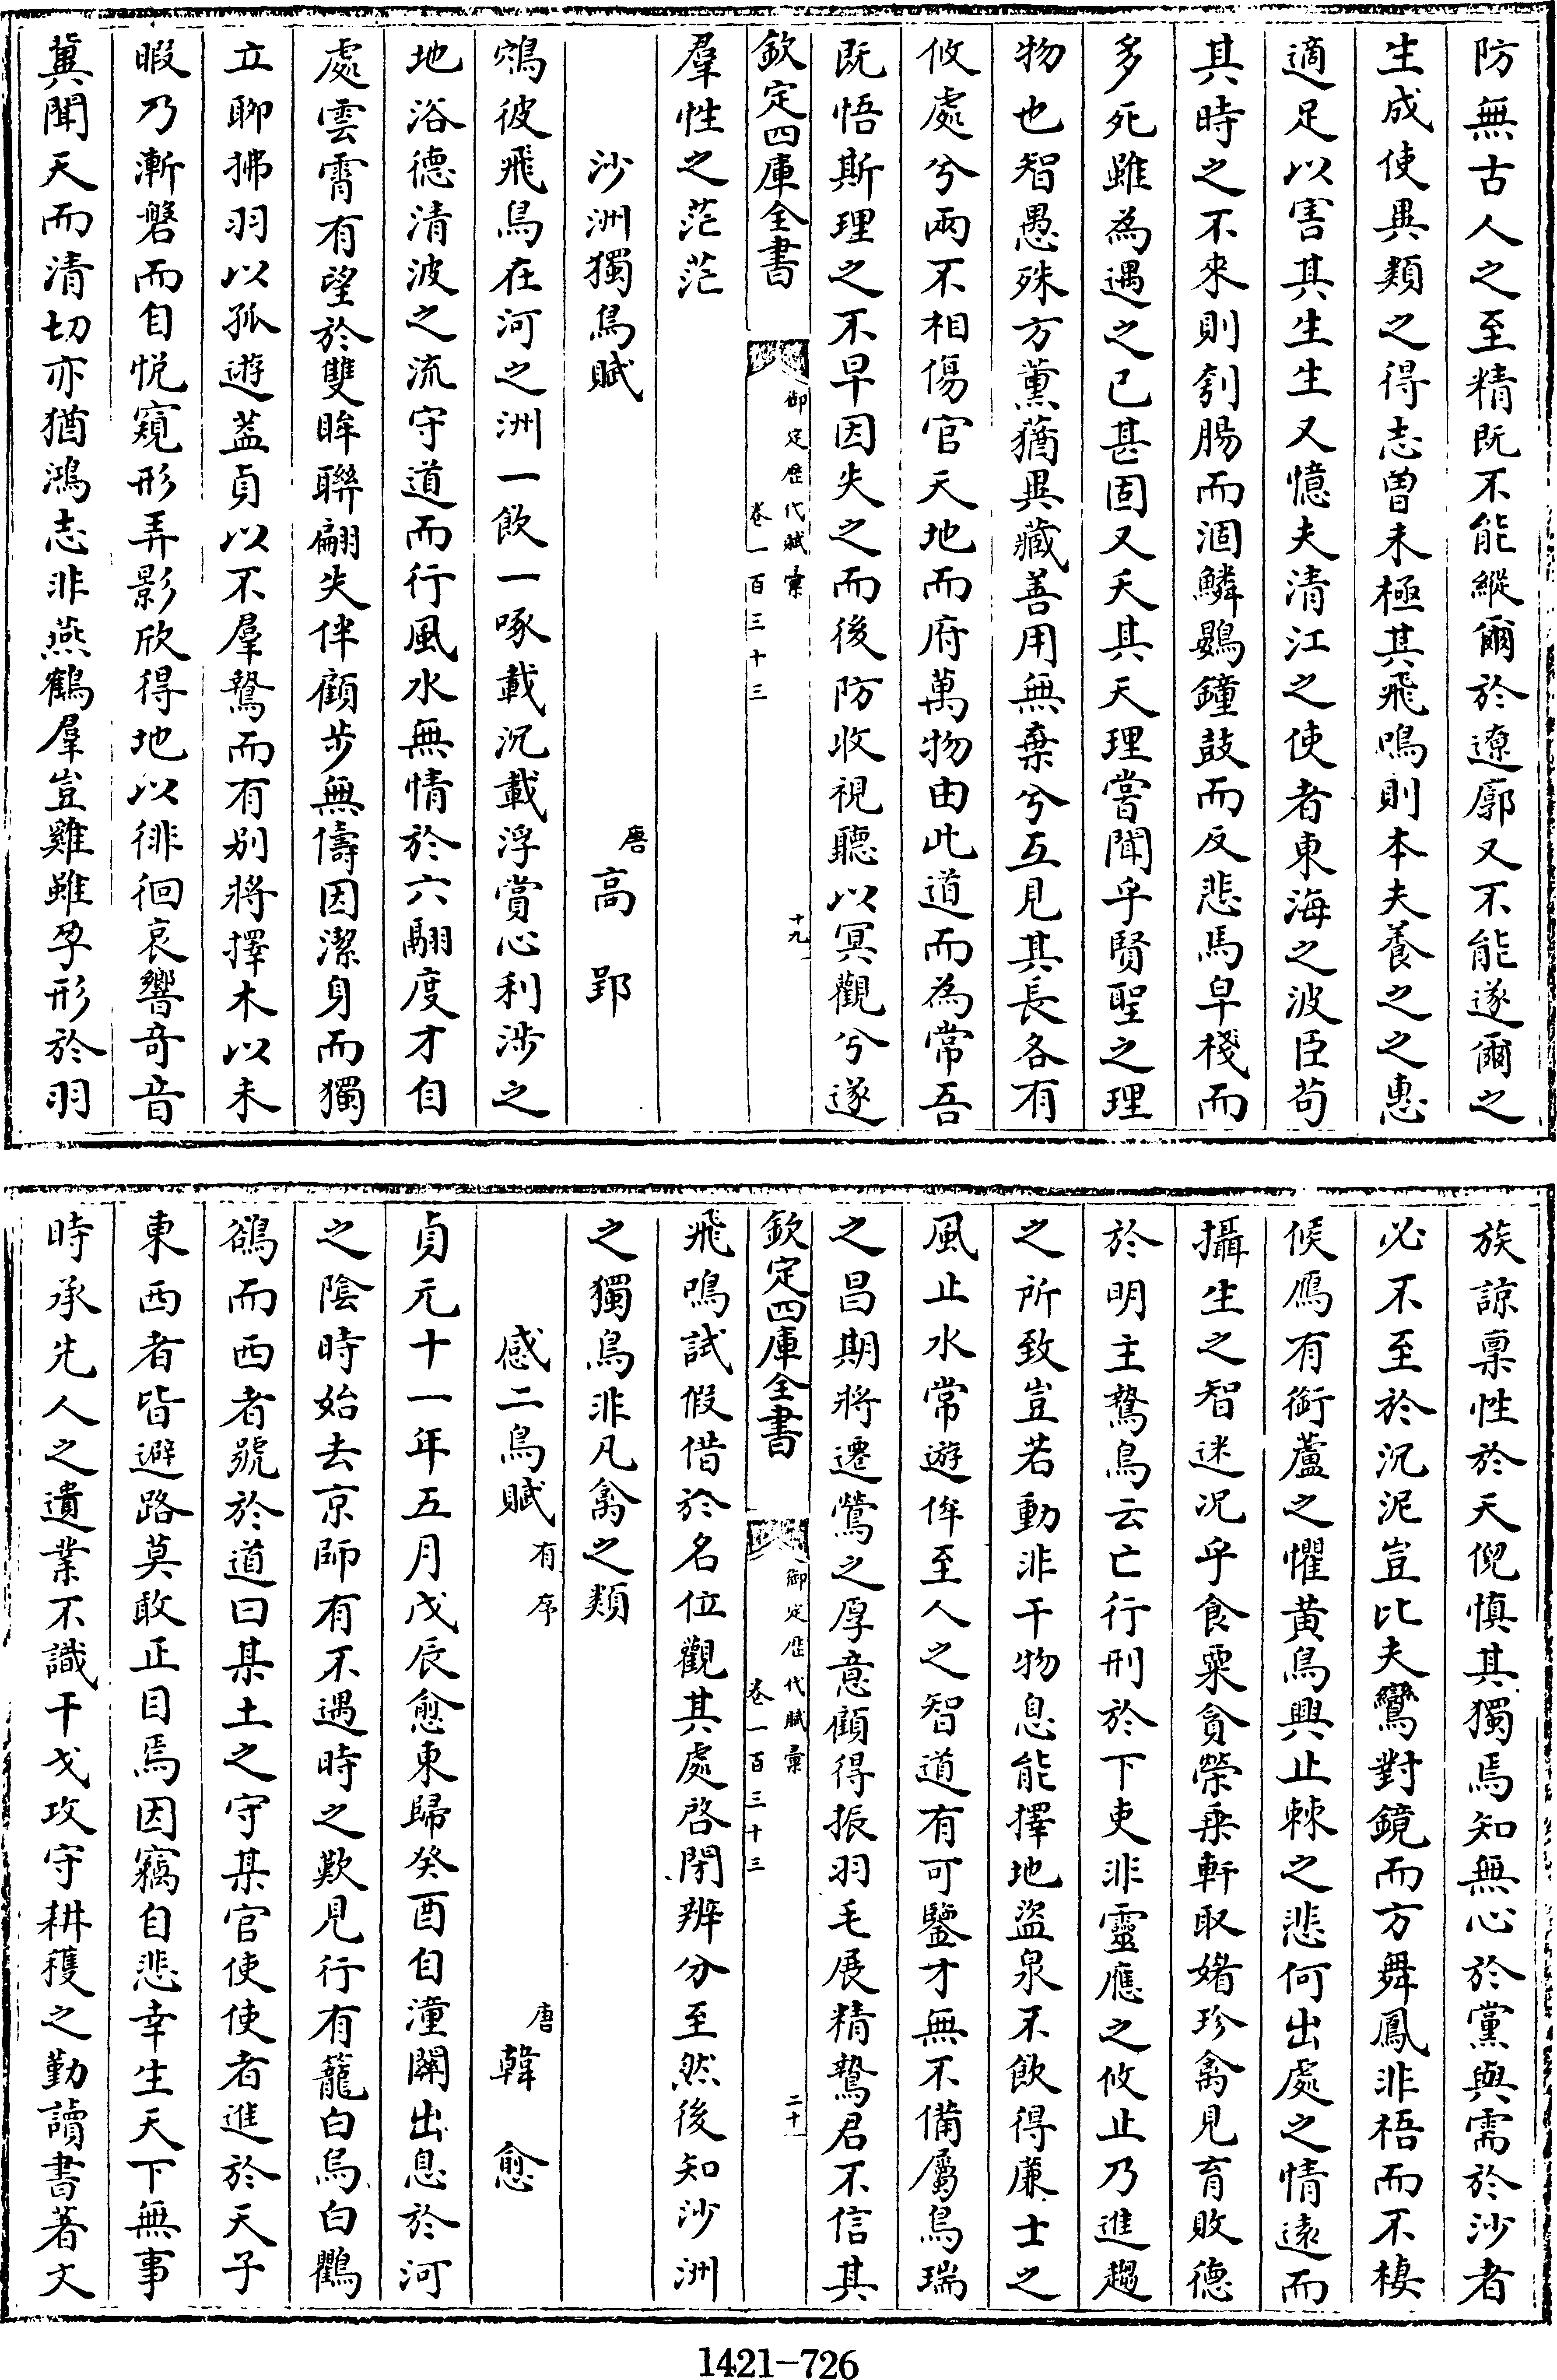 防無古人之至精既不能縱爾於遼廓又不能遂爾之
生成使異類之得志曽未極其飛鳴則本夫養之之惠
適足以害其生生又憶夫清江之使者東海之波臣茍
其時之不來則刳腸而涸鱗鷃鐘鼓而反悲馬皁棧而
多死雖為遇之已甚固又夭其天理嘗聞乎賢聖之理
物也智愚殊方薫蕕異藏善用無棄兮互見其長各有
攸處兮兩不相傷官天地而府萬物由此道而為常吾
既悟斯理之不早因失之而後防收視聽以冥觀兮遂
欽定四庫全書
御定歴代賦彚
卷一百三十三
十九
羣性之茫茫
沙洲獨鳥賦
唐高郢
鴥彼飛鳥在河之洲一飲一啄載沉載浮賞心利涉之
地浴德清波之流守道而行風水無情於六翮度才自
處雲霄有望於雙眸聯翩失伴顧步無儔因潔身而獨
立聊拂羽以孤遊葢貞以不羣鷙而有别將擇木以未
暇乃漸磐而自悦窺形弄影欣得地以徘徊哀響竒音
冀聞天而清切亦猶鴻志非燕鶴羣豈雞雖孕形於羽
族諒禀性於天倪慎其獨焉知無心於黨與需於沙者
必不至於沉泥豈比夫鸞對鏡而方舞鳳非梧而不棲
候鴈有銜蘆之懼黄鳥興止棘之悲何出處之情逺而
攝生之智迷況乎食粟貪榮乗軒取媿珍禽見育敗德
於明主鷙鳥云亡行刑於下吏非靈應之攸止乃進趨
之所致豈若動非干物息能擇地盜泉不飲得亷士之
風止水常遊侔至人之智道有可鑒才無不備屬鳥瑞
之昌期將遷鶯之厚意顧得振羽毛展精鷙君不信其
欽定四庫全書
御定歴代賦彚
卷一百三十三
二十
飛鳴試假借於名位觀其處啓閉辨分至然後知沙洲
之獨鳥非凡禽之類
感二鳥賦有序
唐韓愈
貞元十一年五月戊辰愈東歸癸酉自潼闗出息於河
之陰時始去京師有不遇時之歎見行有籠白烏白鸜
鵒而西者號於道曰某土之守某官使使者進於天子
東西者皆避路莫敢正目焉因竊自悲幸生天下無事
時承先人之遺業不識干戈攻守耕穫之勤讀書著文
1421-726